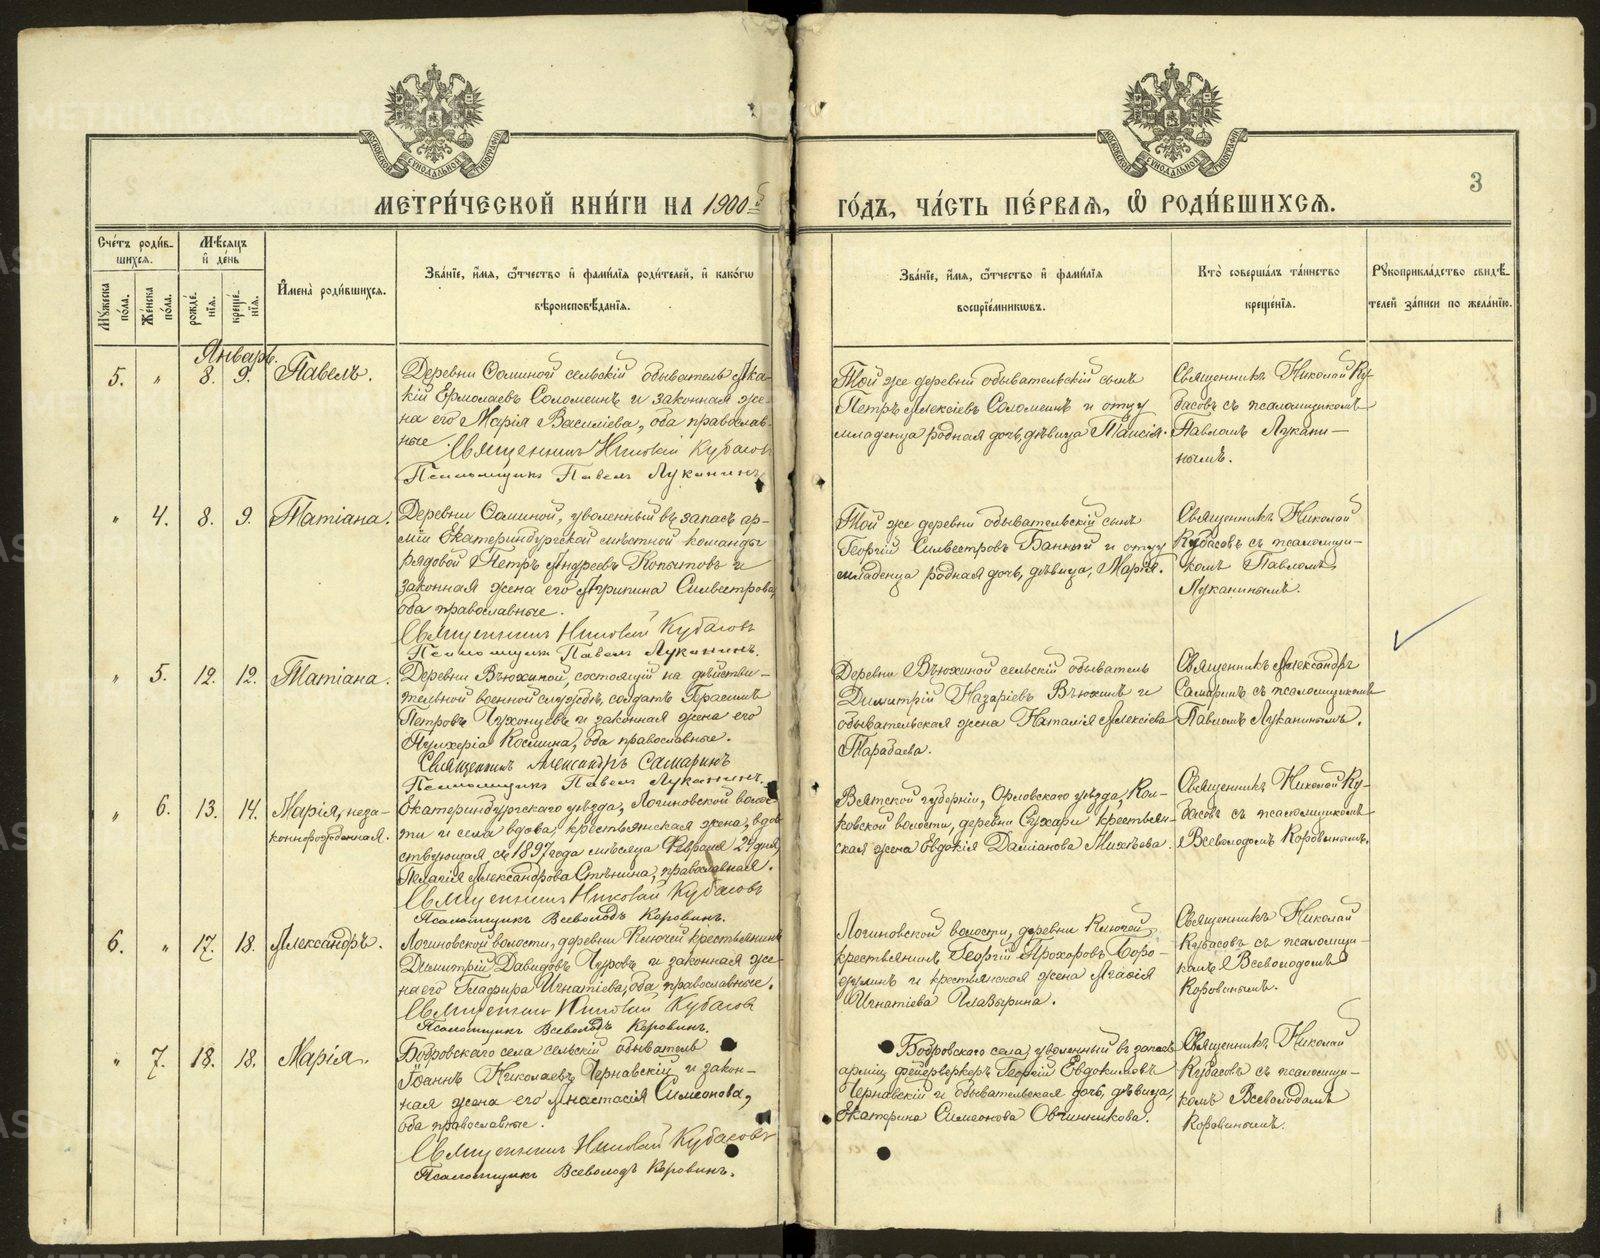 МЕТРИ́ЧЕСКОЙ КНИ́ГИ НА 1900й
ГО́ДЪ, ЧА́СТЬ ПЕ́РВАѦ, Ѽ РОДИ́ВШИХСѦ.
3
Сче́тъ роди́в-
шихсѧ.
Му́жеска по́ла.
Же́нска по́ла.
Мѣ́сѧцъ
и де́нь
рожде́-
нїѧ.
креще́-
нїѧ.
И҆мена̀ роди́вшихсѧ.
Зва́нїе, и҆́мѧ, ѻ҆́тчество и҆ фами́лїѧ роди́телей, и҆ како́гѡ
вѣроисповѣ́данїѧ.
Зва́нїе, и҆́мѧ, ѻ҆́тчество и҆ фами́лїѧ
воспрїе́мникѡвъ.
Кто̀ соверша́лъ та́инство
креще́нїѧ.
Рꙋкоприкла́дство свидѣ́-
телей за́писи по жела́нїю.
Январь.
5. " 8. 9. Павелъ.
Деревни Фоминой сельскій обыватель Ака-
кій Ермолаевъ Соломеинъ и законная же-
на его Марія Василіева, оба православ-
ные. Священникъ Николай Кубасовъ
Псаломщикъ Павелъ Луканинъ.
Той же деревни обывательскій сынъ
Петръ Алексіевъ Соломеинъ и отцу
младенца родная дочь, дѣвица Таисія.
Священникъ Николай Ку-
басовъ съ псаломщикомъ
Павломъ Лукани-
нымъ.
" 4. 8. 9. Татіана.
Деревни Фоминой, уволенный въ запасъ ар-
міи Екатеринбургской мѣстной команды
рядовой Петръ Андреевъ Копытовъ и
законная жена его Агрипина Сильвестрова,
оба православные.
Священникъ Николай Кубасовъ
Псаломщикъ Павелъ Луканинъ.
Той же деревни обывательскій сынъ
Георгій Сильвестровъ Банный и отцу
младенца родная дочь, дѣвица, Марія.
Священникъ Николай
Кубасовъ съ псаломщи-
комъ Павломъ
Луканинымъ.
" 5. 12. 12. Татіана.
Деревни Вьюхиной, состоящій на дѣйстви-
тельной военной службѣ, солдатъ Герасимъ
Петровъ Чухонцевъ и законная жена его
Пулхерія Космина, оба православные.
Священникъ Александръ Самаринъ
Псаломщикъ Павелъ Луканинъ.
Деревни Вьюхиной сельскій обыватель
Димитрій Назаріевъ Вьюхинъ и
обывательская жена Наталія Алексіева
Тарабаева.
Священникъ Александръ
Самаринъ съ псаломщикомъ
Павломъ Луканинымъ.
" 6. 13. 14. Марія, неза-
коннорожденная.
Екатеринбургскаго уѣзда, Логиновской волос-
ти и села вдова, крестьянская жена, вдов-
ствующая съ 1897 года мѣсяца Февраля 24 дня,
Пелагія Александрова Стѣнина, православная.
Священникъ Николай Кубасовъ
Псаломщикъ Всеволодъ Коровинъ.
Вятской губерніи, Орловскаго уѣзда, Кол-
ковской волости, деревни Сухари крестьян-
ская жена Евдокія Даміанова Михѣева.
Священникъ Николай Ку-
басовъ съ псаломщикомъ
Всеволодомъ Коровинымъ.
6. " 17. 18. Александръ.
Логиновской волости, деревни Ключей крестьянинъ
Димитрій Давидовъ Чуровъ и законная же-
на его Глафира Игнатіева, оба православные.
Священникъ Николай Кубасовъ
Псаломщикъ Всеволодъ Коровинъ.
Логиновской волости, деревни Ключей,
крестьянинъ Георгій Прохоровъ Боро-
дулинъ и крестьянская жена Агафія
Игнатіева Глазырина.
Священникъ Николай
Кубасовъ съ псаломщи-
комъ Всеволодомъ
Коровинымъ.
" 7. 18. 18. Марія.
Бобровскаго села сельскій обыватель
Іоаннъ Николаевъ Чернавскій и закон-
ная жена его Анастасія Симеонова,
оба православные.
Священникъ Николай Кубасовъ
Псаломщикъ Всеволодъ Коровинъ.
Бобровскаго села, уволенный въ запасъ
арміи фейерверкеръ Георгій Евдокимовъ
Чернавскій и обывательская дочь, дѣвица,
Екатерина Симеонова Овчинникова.
Священникъ Николай
Кубасовъ съ псаломщи-
комъ Всеволодомъ
Коровинымъ.